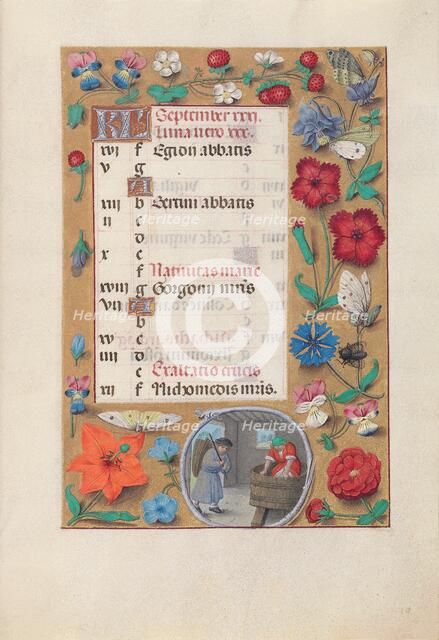 KL September xxx.
Luna vero xxx.
xvi f Egidii abbatis
v g
A
xiii b Bertini abbatis
ii c
d
x e
f Nativitas marie
xviii g Gorgonii mris
vii A
b
xv c
iiii d
e Exaltatio crucis
xii f Nichomedis mris.
Heritage
Heritage
Heritage
Heritage
Heritage
Heritage
Heritage
Heritage